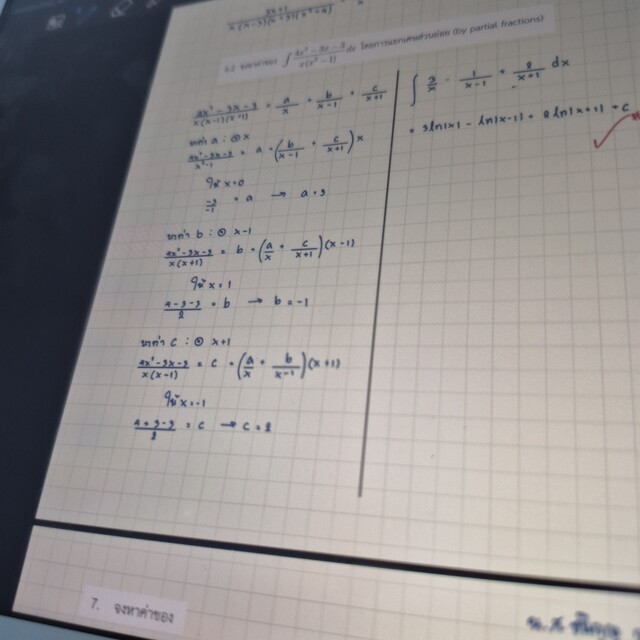 5.2 จงหาค่าของ ∫ (4x² - 3x - 3)/(x(x² - 1)) dx โดยการแยกเศษส่วนย่อย (by partial fractions)
(4x² - 3x - 3)/(x(x-1)(x+1)) = a/x + b/(x-1) + c/(x+1)
หาค่า a : ⊗ x
(4x² - 3x - 3)/(x² - 1) = a + (b/(x-1) + c/(x+1)) x
ให้ x = 0
-3/-1 = a → a = 3
หาค่า b : ⊗ x-1
(4x² - 3x - 3)/(x(x+1)) = b + (a/x + c/(x+1)) (x-1)
ให้ x = 1
(4-3-3)/2 = b → b = -1
หาค่า c : ⊗ x+1
(4x² - 3x - 3)/(x(x-1)) = c + (a/x + b/(x-1)) (x+1)
ให้ x = -1
(4+3-3)/2 = c → c = 2
∫ 3/x - 1/(x-1) + 2/(x+1) dx
= 3 ln|x| - ln|x-1| + 2 ln|x+1| + C
7. จงหาค่าของ